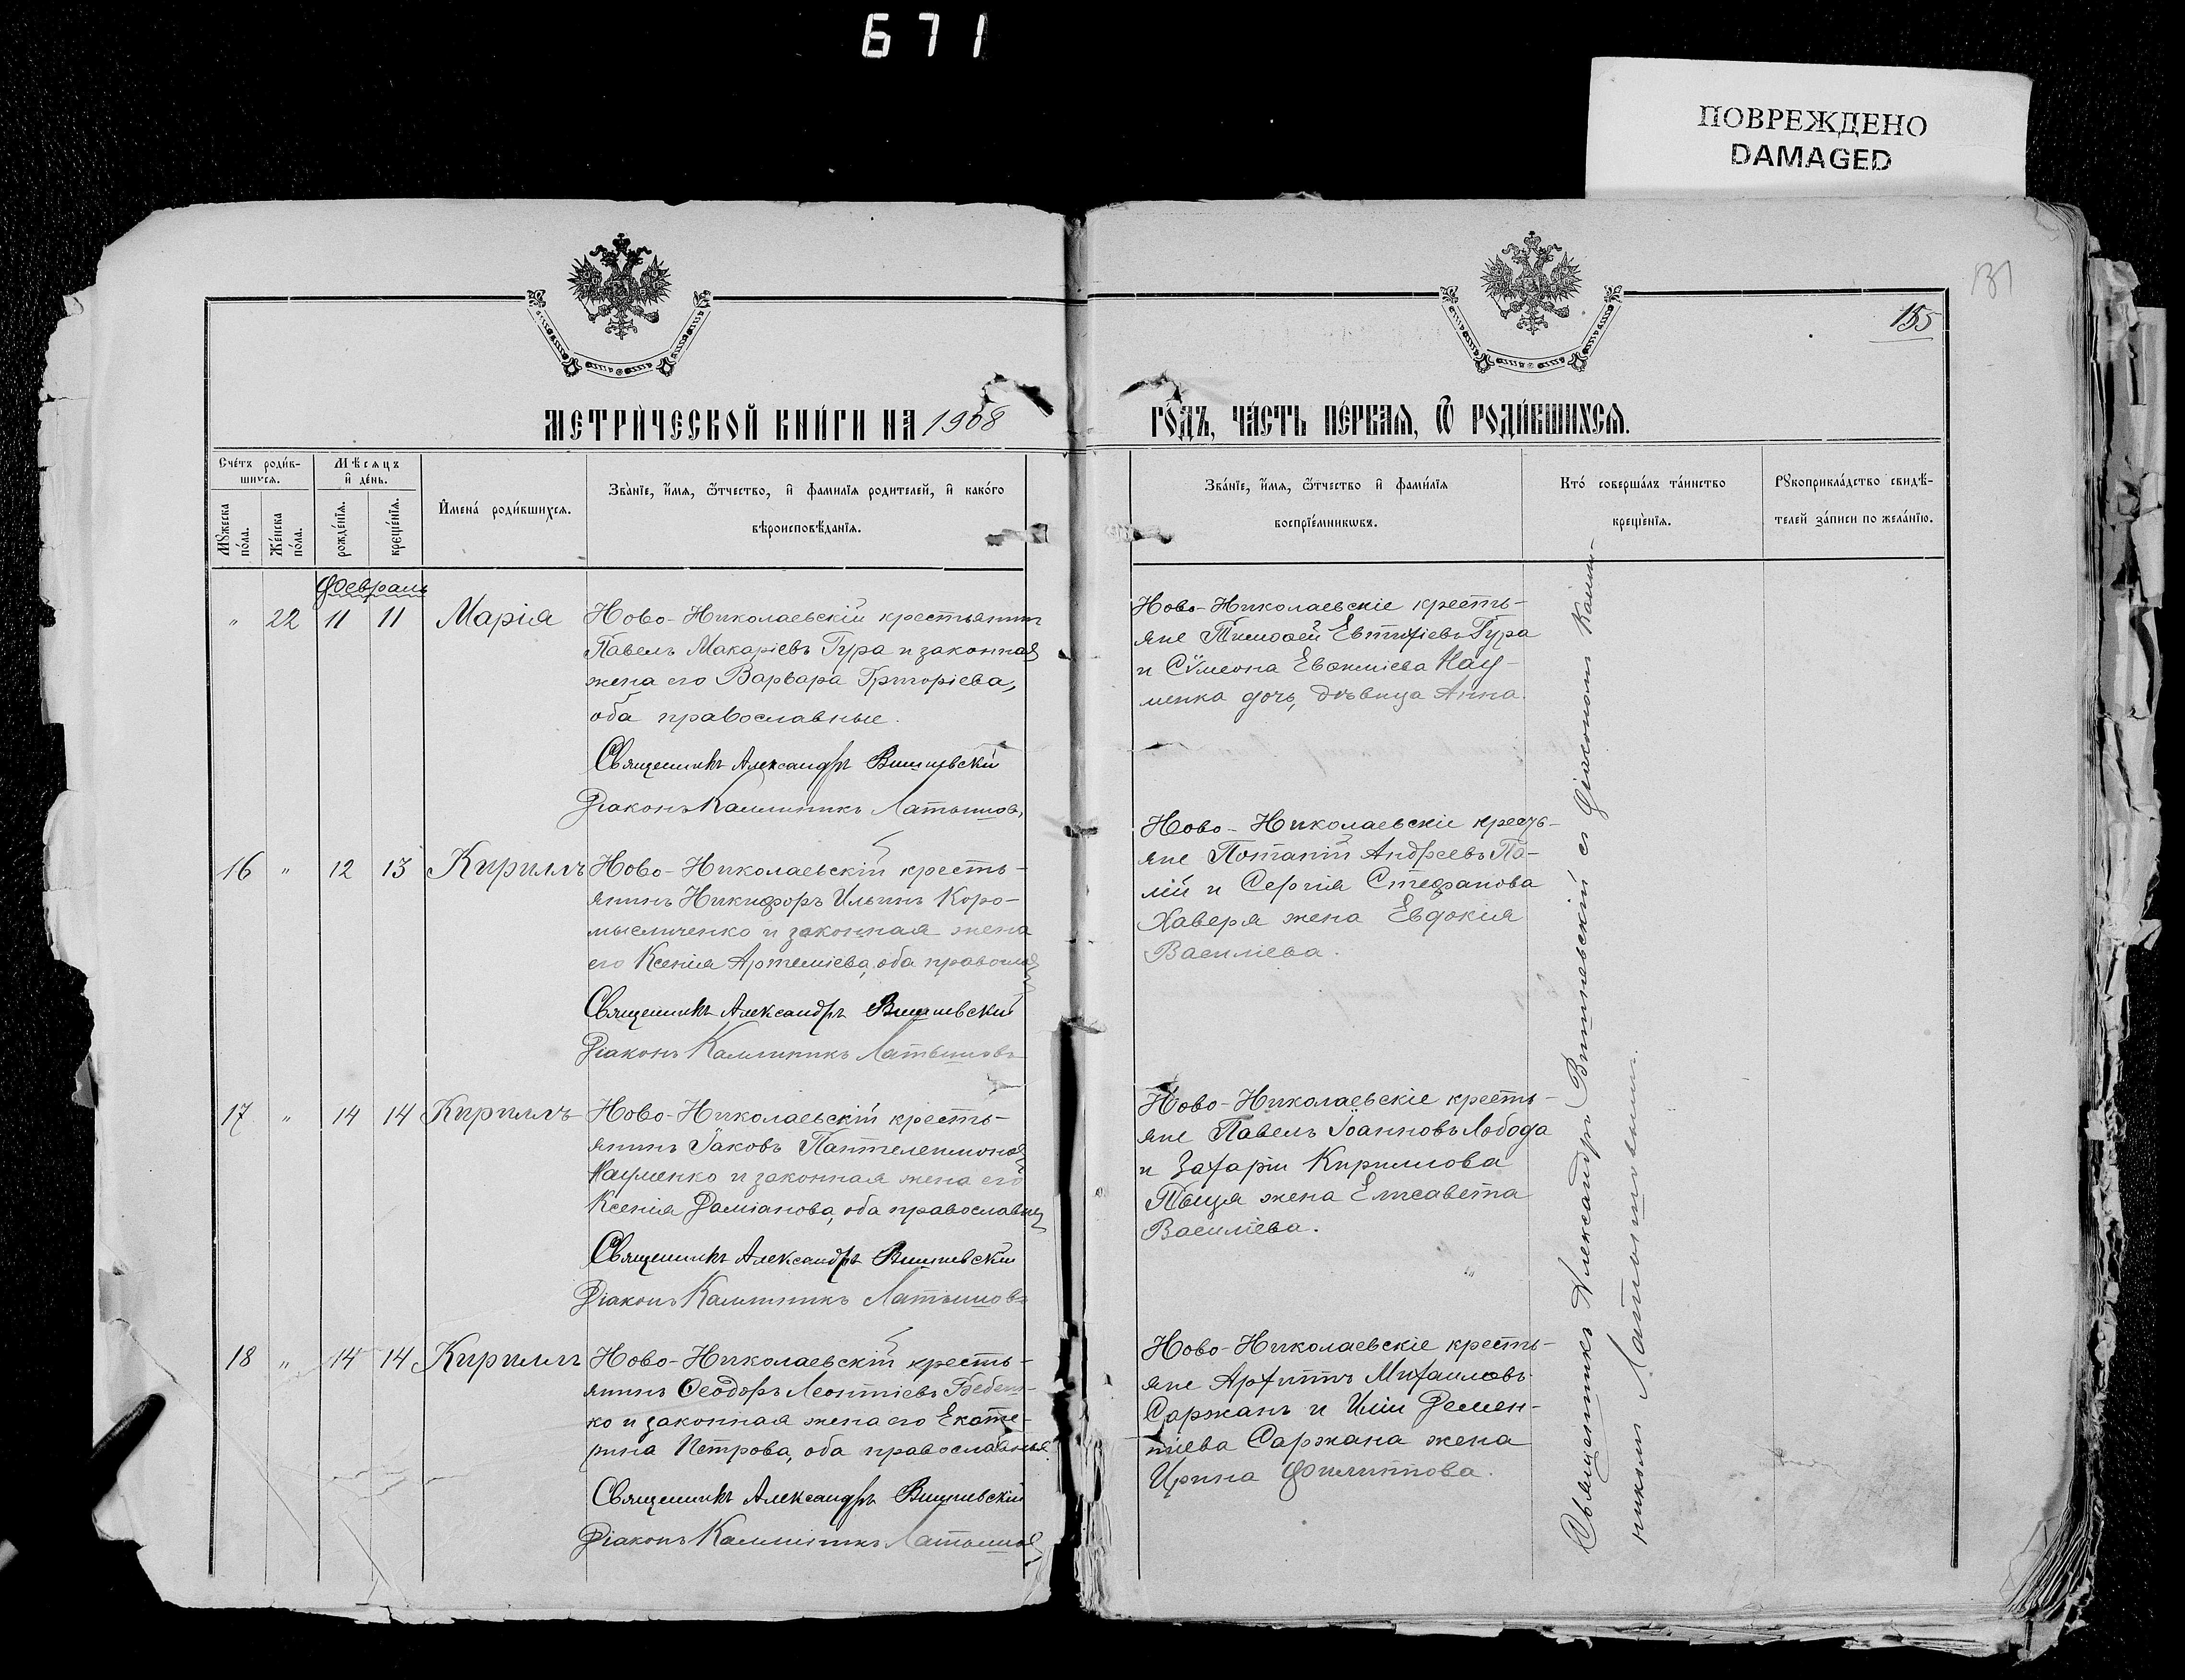 671
ПОВРЕЖДЕНО
DAMAGED
155
МЕТРИ́ЧЕСКОЙ КНИ́ГИ НА 1908
ГО́ДЪ, ЧА́СТЬ ПЕ́РВАЯ, Ѿ РОДИ́ВШИХСЯ.
Сче́тъ роди́в-
шихся.
Му́жеска
по́ла.
Же́нска
по́ла.
Мѣсяцъ
и҆ де́нь.
рожде́нїя.
креще́нїя.
И҆мена́ роди́вшихся.
Зва́нїе, и҆́мя, ѻ҆́тчество, и҆ фамилїя родителей, и҆ како́го
вѣроисповѣ́данїя.
Зва́нїе, и҆́мя, ѻ҆́тчество и҆ фами́лїя
воспрїе́мниковъ.
Кто́ соверша́лъ та́инство
креще́нїя.
Рꙋкоприкла́дство свидѣ́-
телей за́писи по жела́нїю.
Февраль
" 22 11 11 Марія
Ново-Николаевскій крестьянинъ
Павелъ Макаріевъ Гура и законная
жена его Варвара Григоріева,
оба православные.
Священникъ Александръ Вишневскій
Діаконъ Каллиникъ Латышовъ
Ново-Николаевскіе кресть-
яне Тимоѳей Евтихіевъ Гура
и Сѵмеона Евѳиміева Нау-
менка дочь, дѣвица Анна.
16 " 12 13 Кириллъ
Ново-Николаевскій кресть-
янинъ Никифоръ Ильинъ Коро-
мысличенко и законная жена
его Ксенія Артеміева, оба правосл
Священникъ Александръ Вишневскій
Діаконъ Каллиникъ Латышовъ
Ново-Николаевскіе кресть-
яне Потапій Андреевъ Па-
лій и Сергія Стефанова
Хаверя жена Евдокія
Василіева.
17 " 14 14 Кириллъ
Ново-Николаевскій кресть-
янинъ Іаковъ Пантелеимоновъ
Науменко и законная жена его
Ксенія Даміанова, оба православны
Священникъ Александръ Вишневскій
Діаконъ Каллиникъ Латышовъ
Ново-Николаевскіе кресть-
яне Павелъ Іоанновъ Лобода
и Захаріи Кириллова
Тыця жена Елисавета
Василіева.
18 " 14 14 Кириллъ
Ново-Николаевскій кресть-
янинъ Ѳеодоръ Леонтіевъ Бебеш-
ко и законная жена его Екате-
рина Петрова, оба православные.
Священникъ Александръ Вишневскій
Діаконъ Каллиникъ Латышовъ
Ново-Николаевскіе кресть-
яне Архиппъ Михаиловъ
Саржанъ и Иліи Демен-
тіева Саржана жена
Ирина Филиппова.
Священникъ Александръ Вишневскій съ діакономъ Калли-
никомъ Латышовымъ.